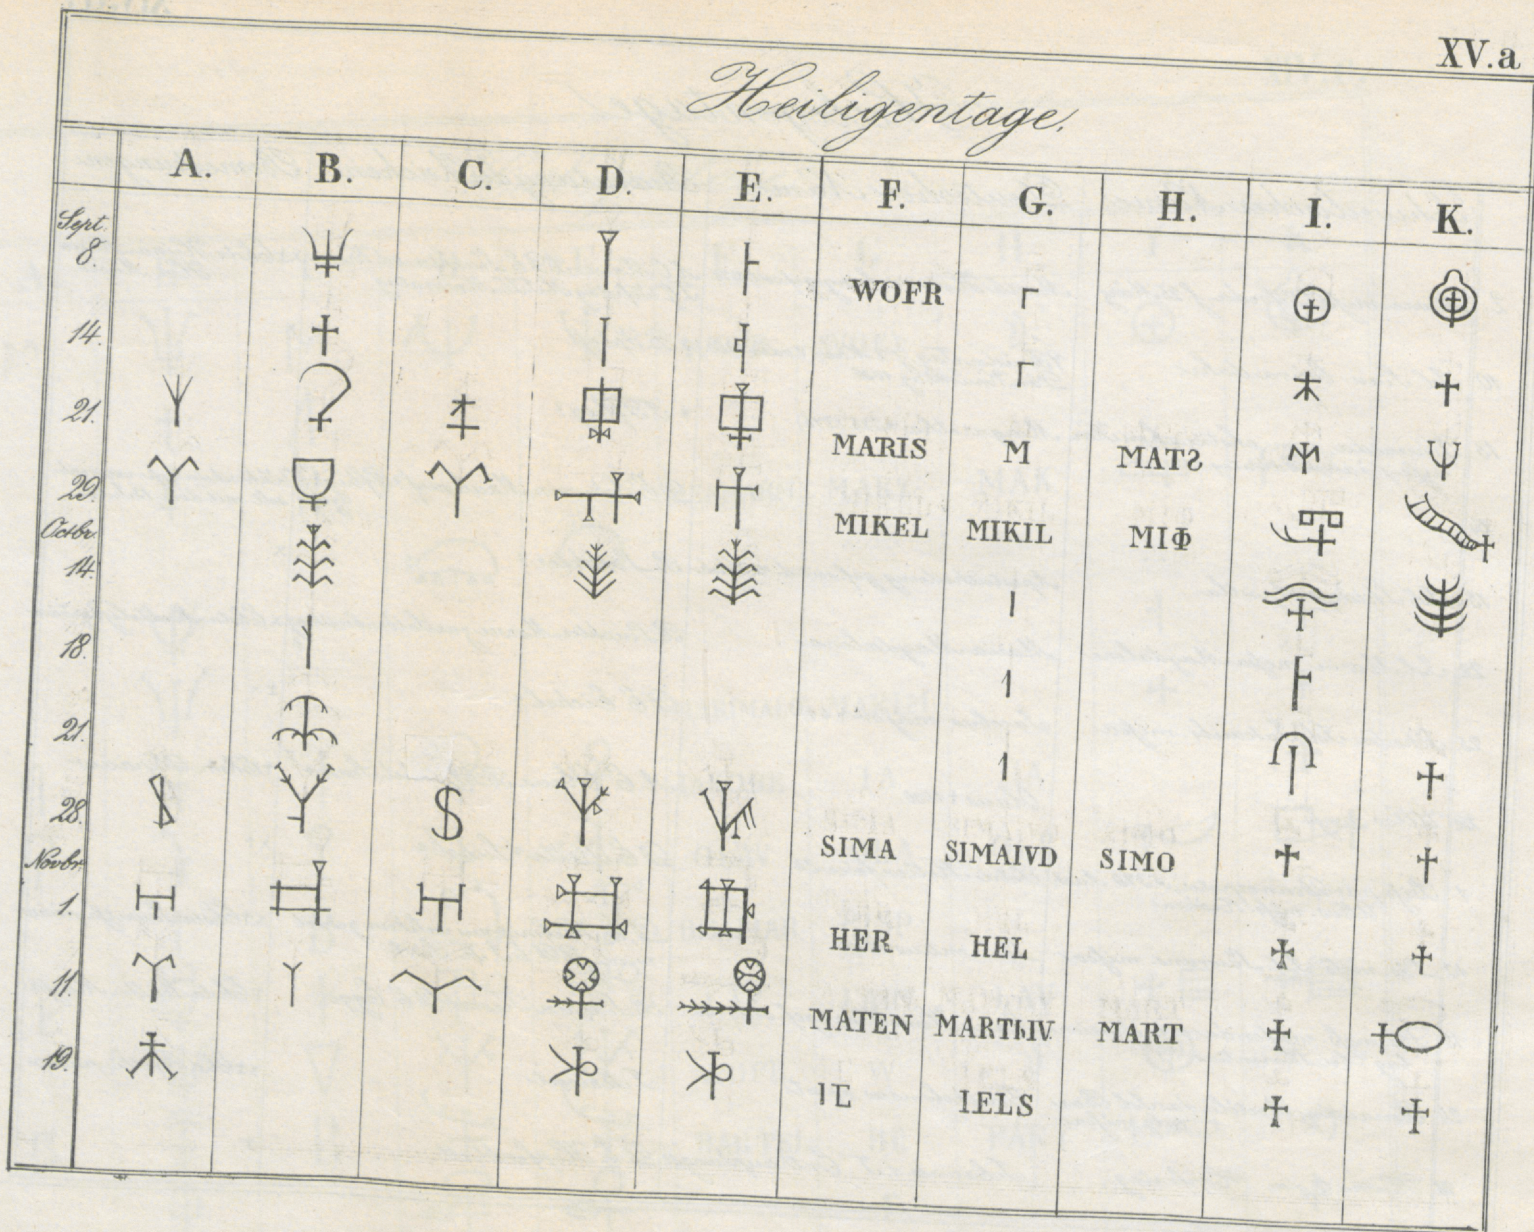 XV.a
Heiligentage.
A. B. C. D. E. F. G. H. I. K.
Sept.
8. WOFR
14.
21. MARIS M MATS
29. MIKEL MIKIL MIΦ
Octbr.
14.
18.
21.
28. SIMA SIMAIVD SIMO
Novbr.
1. HER HEL
11. MATEN MARTħIV. MART
19. IELS